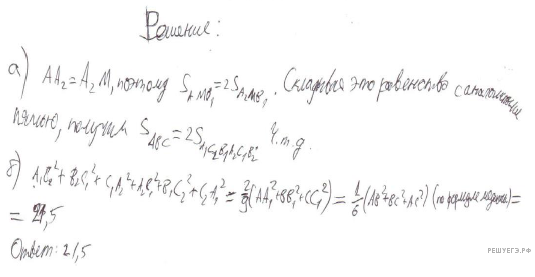 Решение:
а) AA₂ = A₂M, поэтому S_AMB₁ = 2S_A₂MB₁. Складывая это равенство с аналогичными
пятью, получим S_ABC = 2S_A₁C₂B₁A₂C₁B₂ Ч.т.д.
б) A₁B₂² + B₂C₁² + C₁A₂² + A₂B₁² + B₁C₂² + C₂A₁² = (AA₁² + BB₁² + CC₁²) = (AB² + BC² + AC²) (по формуле медианы) =
= 21,5
Ответ: 21,5
РЕШУЕГЭ.РФ